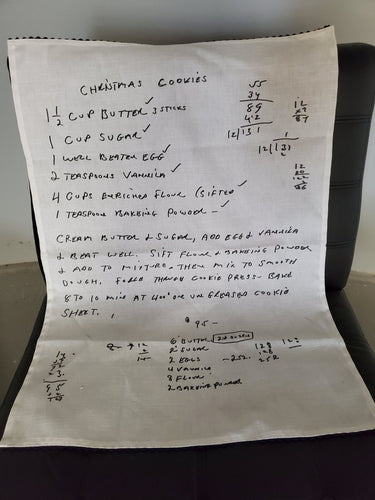 CHRISTMAS COOKIES
1 1/2 CUP BUTTER ✓ 3 STICKS
1 CUP SUGAR ✓
1 WELL BEATEN EGG ✓
2 TEASPOONS VANILLA ✓
4 CUPS ENRICHED FLOUR (SIFTED ✓
1 TEASPOON BAKEING POWDER - ✓
55
34
89
42
12/131
12/131
CREAM BUTTER & SUGAR, ADD EGG & VANILLA
& BEAT WELL. SIFT FLOUR & BAKEING POWDER
& ADD TO MIXTURE - THEN MIX TO SMOOTH
DOUGH. THRU COOKIE PRESS - BAKE
8 TO 10 MINS AT 400° ON UNGREASED COOKIE
SHEET.
95 -
6 BUTTER
2 SUGAR
2 EGGS - 252.
4 VANILLA
8 FLOUR
2 BAKEING POWDER
128
126
252